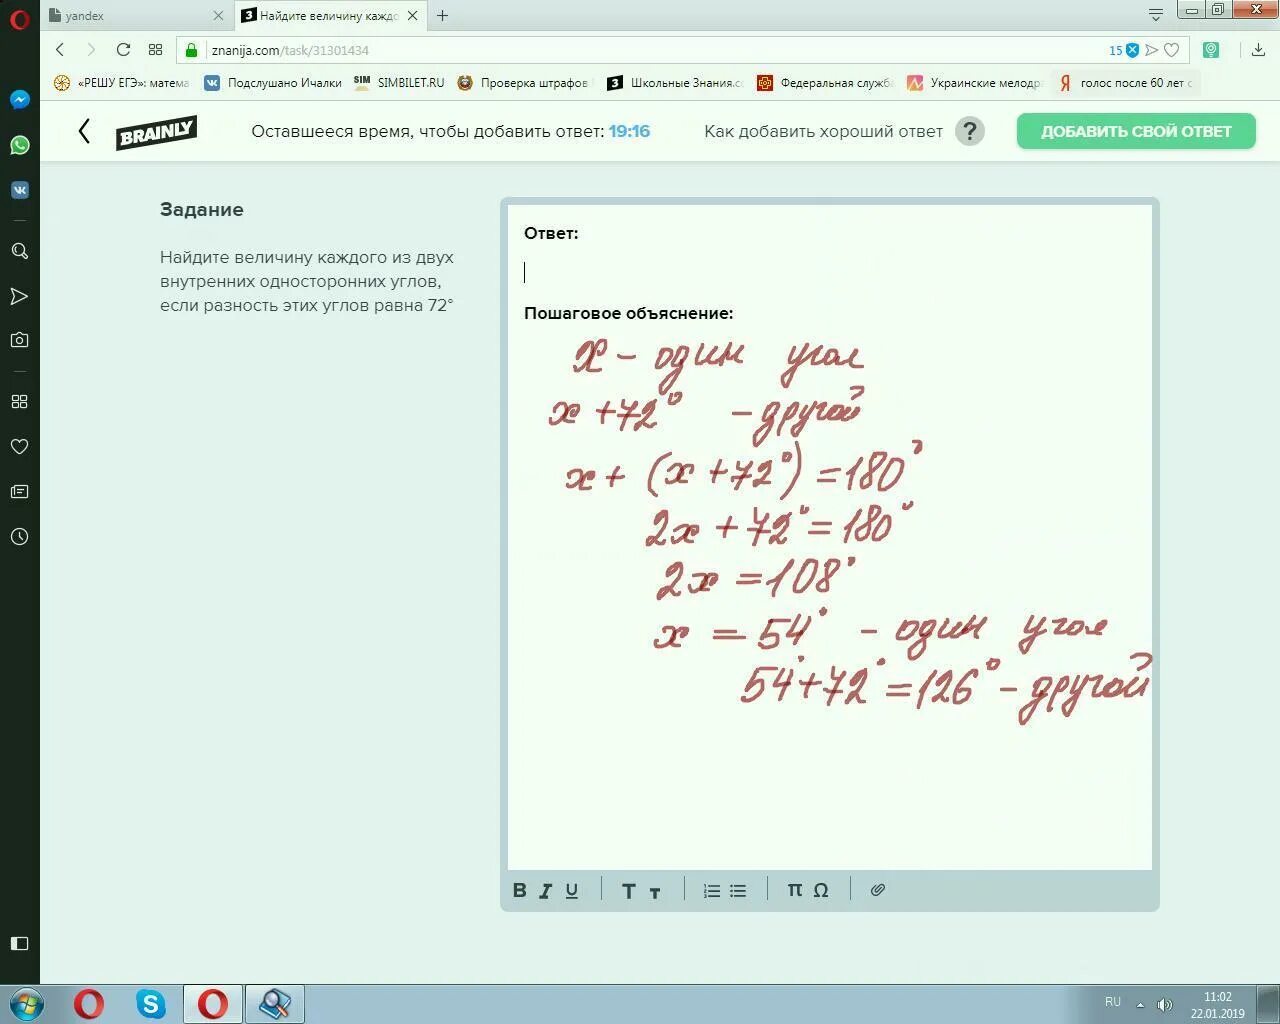 yandex
Найдите величину каждо
znanija.com/task/31301434
15
«РЕШУ ЕГЭ»: матема
Подслушано Ичалки
SIM SIMBILET.RU
Проверка штрафов
Школьные Знания.co
Федеральная служба
Украинские мелодра
Я голос после 60 лет с
BRAINLY
Оставшееся время, чтобы добавить ответ: 19:16
Как добавить хороший ответ ?
ДОБАВИТЬ СВОЙ ОТВЕТ
Задание
Найдите величину каждого из двух
внутренних односторонних углов,
если разность этих углов равна 72°
Ответ:
Пошаговое объяснение:
x – один угол
x + 72° – другой
x + (x + 72°) = 180°
2x + 72° = 180°
2x = 108°
x = 54° – один угол
54° + 72° = 126° – другой
B I U T T π Ω
RU
11:02
22.01.2019